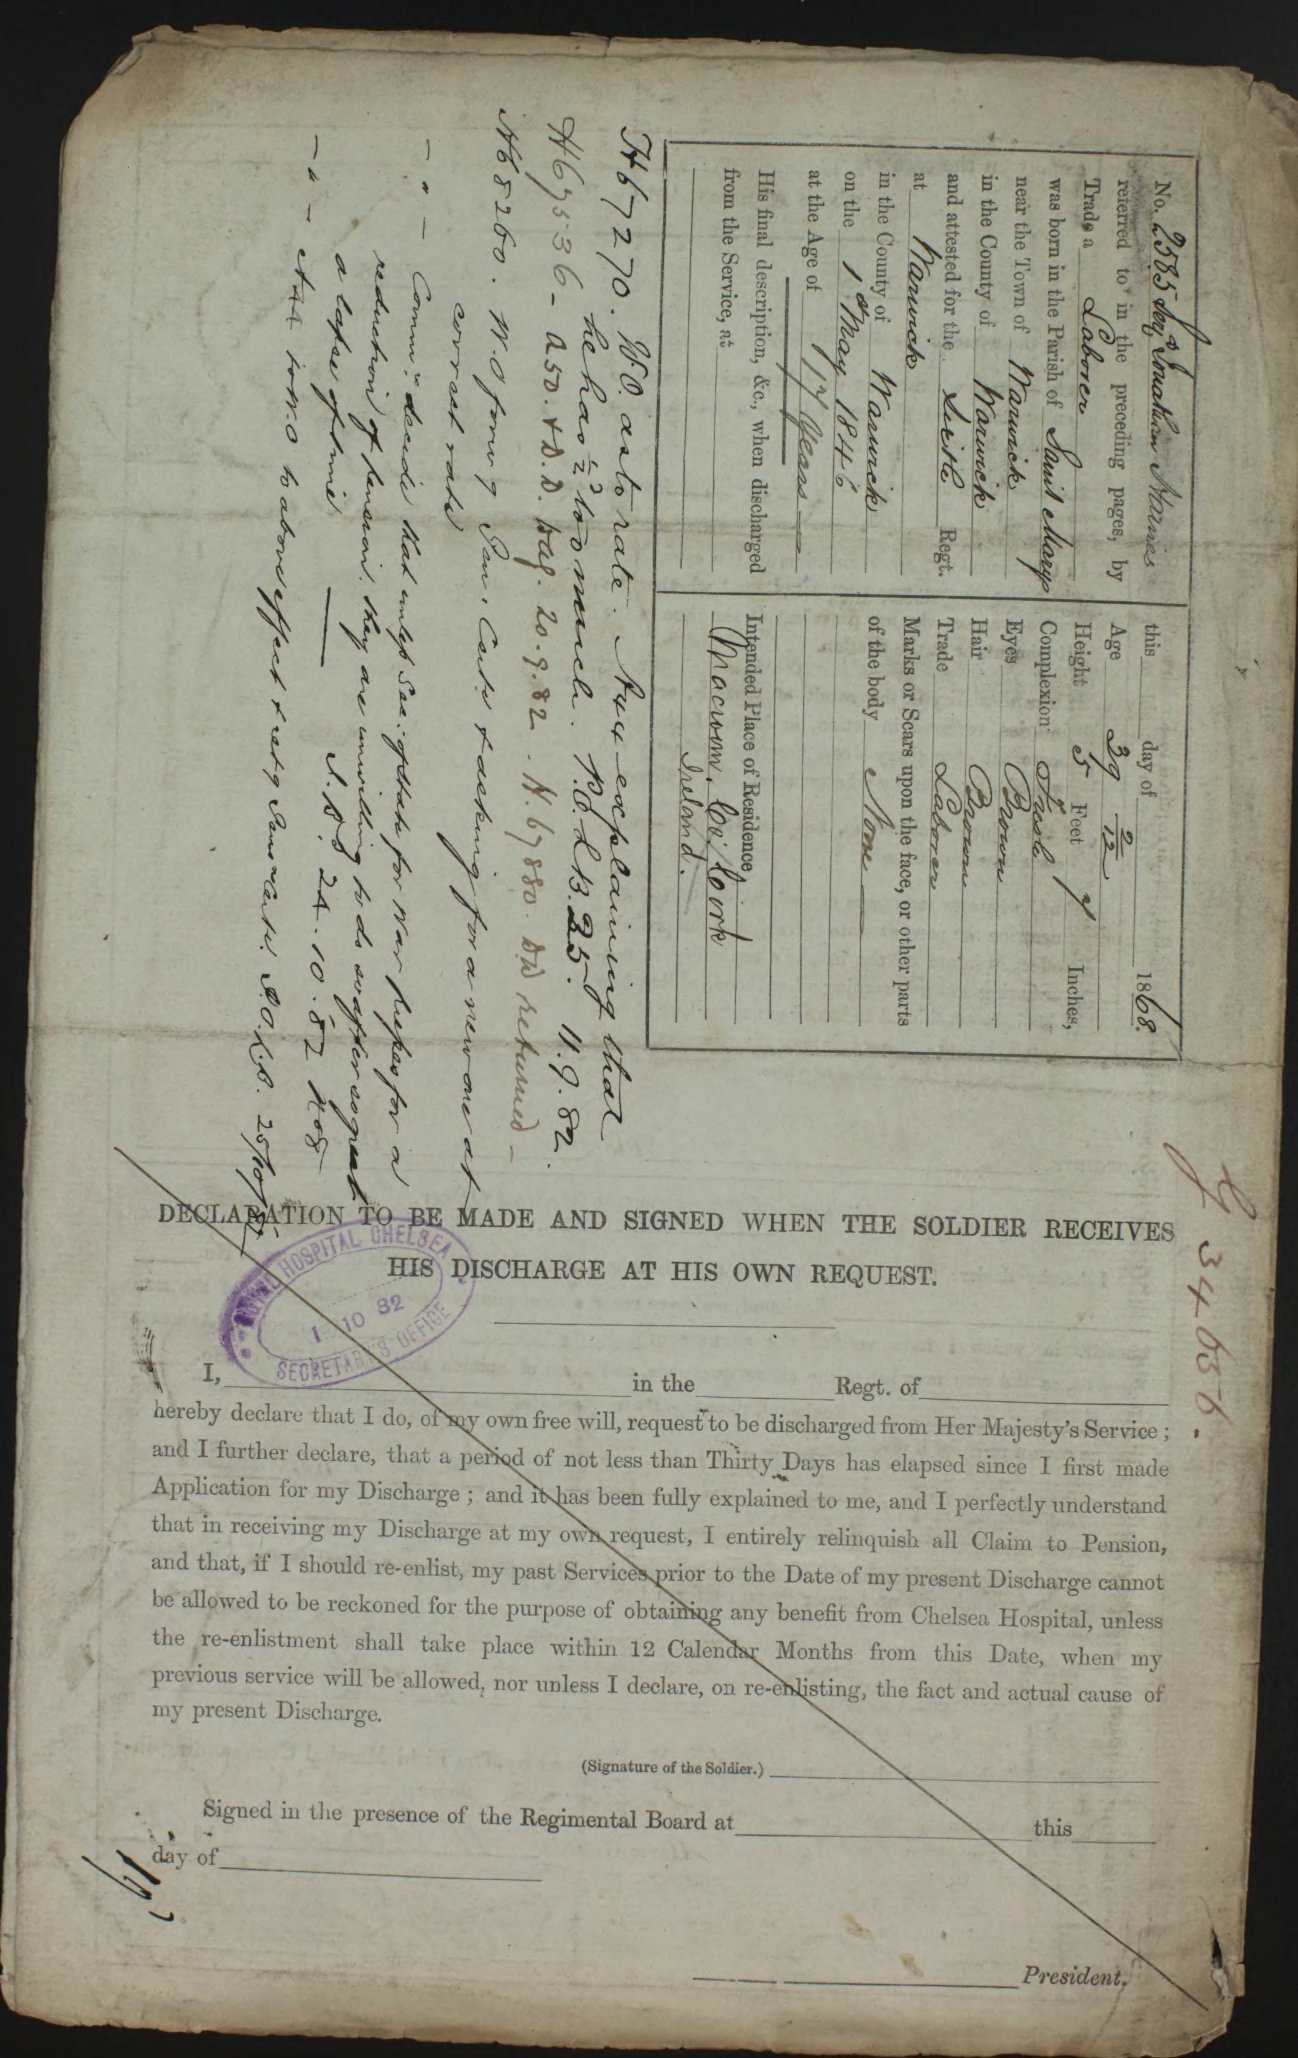 No. 2585 Serjt Jonathan Marines
referred to in the preceding pages, by
Trade a Laborer
was born in the Parish of Saint Marys
near the Town of Warwick
in the County of Warwick
and attested for the Sixth Regt.
at Warwick
in the County of Warwick
on the 1st May 1846
at the Age of 17 Years
His final description, &c., when discharged
from the Service, at
this day of 1868.
Age 39 2/12
Height 5 Feet 7 Inches,
Complexion Fresh
Eyes Brown
Hair Brown
Trade Laborer
Marks or Scars upon the face, or other parts
of the body None
Intended Place of Residence,
Macroom, Co: Cork
Ireland.
H 67270. W.O. as to rate. A44 explaining that
he has ½d too much. P.O. L.B. 25. 11.9.82.
H 67536 - A50. & D.D. Dag. 20.9.82. N. 67880. DW returned -
H 68260. W.O. forwg Iden. Certe & asking for a new one at
correct rate
- " - Commrs decide that unless Sec: of State for War presses for a
reduction of pension they are unwilling to do so after so great
a lapse of time
24.10.82
- " - A44 to W.O to above effect & retg Iden Certe. P.O. L.B. 25/10/82
F 34656.
DECLARATION TO BE MADE AND SIGNED WHEN THE SOLDIER RECEIVES
HIS DISCHARGE AT HIS OWN REQUEST.
ROYAL HOSPITAL CHELSEA
1 10 82
SECRETARY'S OFFICE
I, in the Regt. of
hereby declare that I do, of my own free will, request to be discharged from Her Majesty's Service ;
and I further declare, that a period of not less than Thirty Days has elapsed since I first made
Application for my Discharge ; and it has been fully explained to me, and I perfectly understand
that in receiving my Discharge at my own request, I entirely relinquish all Claim to Pension,
and that, if I should re-enlist, my past Services prior to the Date of my present Discharge cannot
be allowed to be reckoned for the purpose of obtaining any benefit from Chelsea Hospital, unless
the re-enlistment shall take place within 12 Calendar Months from this Date, when my
previous service will be allowed, nor unless I declare, on re-enlisting, the fact and actual cause of
my present Discharge.
(Signature of the Soldier.)
Signed in the presence of the Regimental Board at this
day of
President.